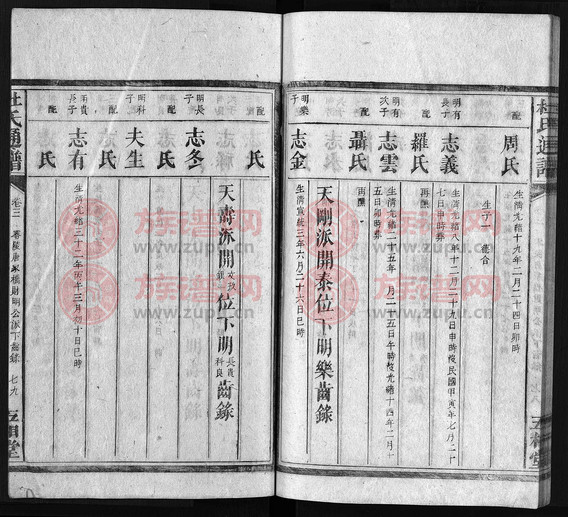 杜氏通譜
配
周氏
生清光緒十九年二月二十四日卯時
生子二
明有長子
志義
生清光緒八年十二月二十九日申時歿民國甲寅年七月二十七日申時葬
配
羅氏
再醮
明有次子
志雲
生清光緒二十五年 月二十五日午時歿光緒 十四年二月十五日卯時葬
配
聶氏
再醮
天剛派開泰位下明樂齒錄
明樂子
志金
生清宣統三年六月二十六日巳時
五桂堂
配
氏
天壽派開位下明長貴科良齒錄
明長子
志冬
配
氏
明科子
夫生
配
氏
明貴長子
志有
生清光緒三十二年丙午三月初十日巳時
杜氏通譜
卷三
下齒錄
七九
五桂堂
族譜网
www.zupu.cn
族譜网
www.zupu.cn